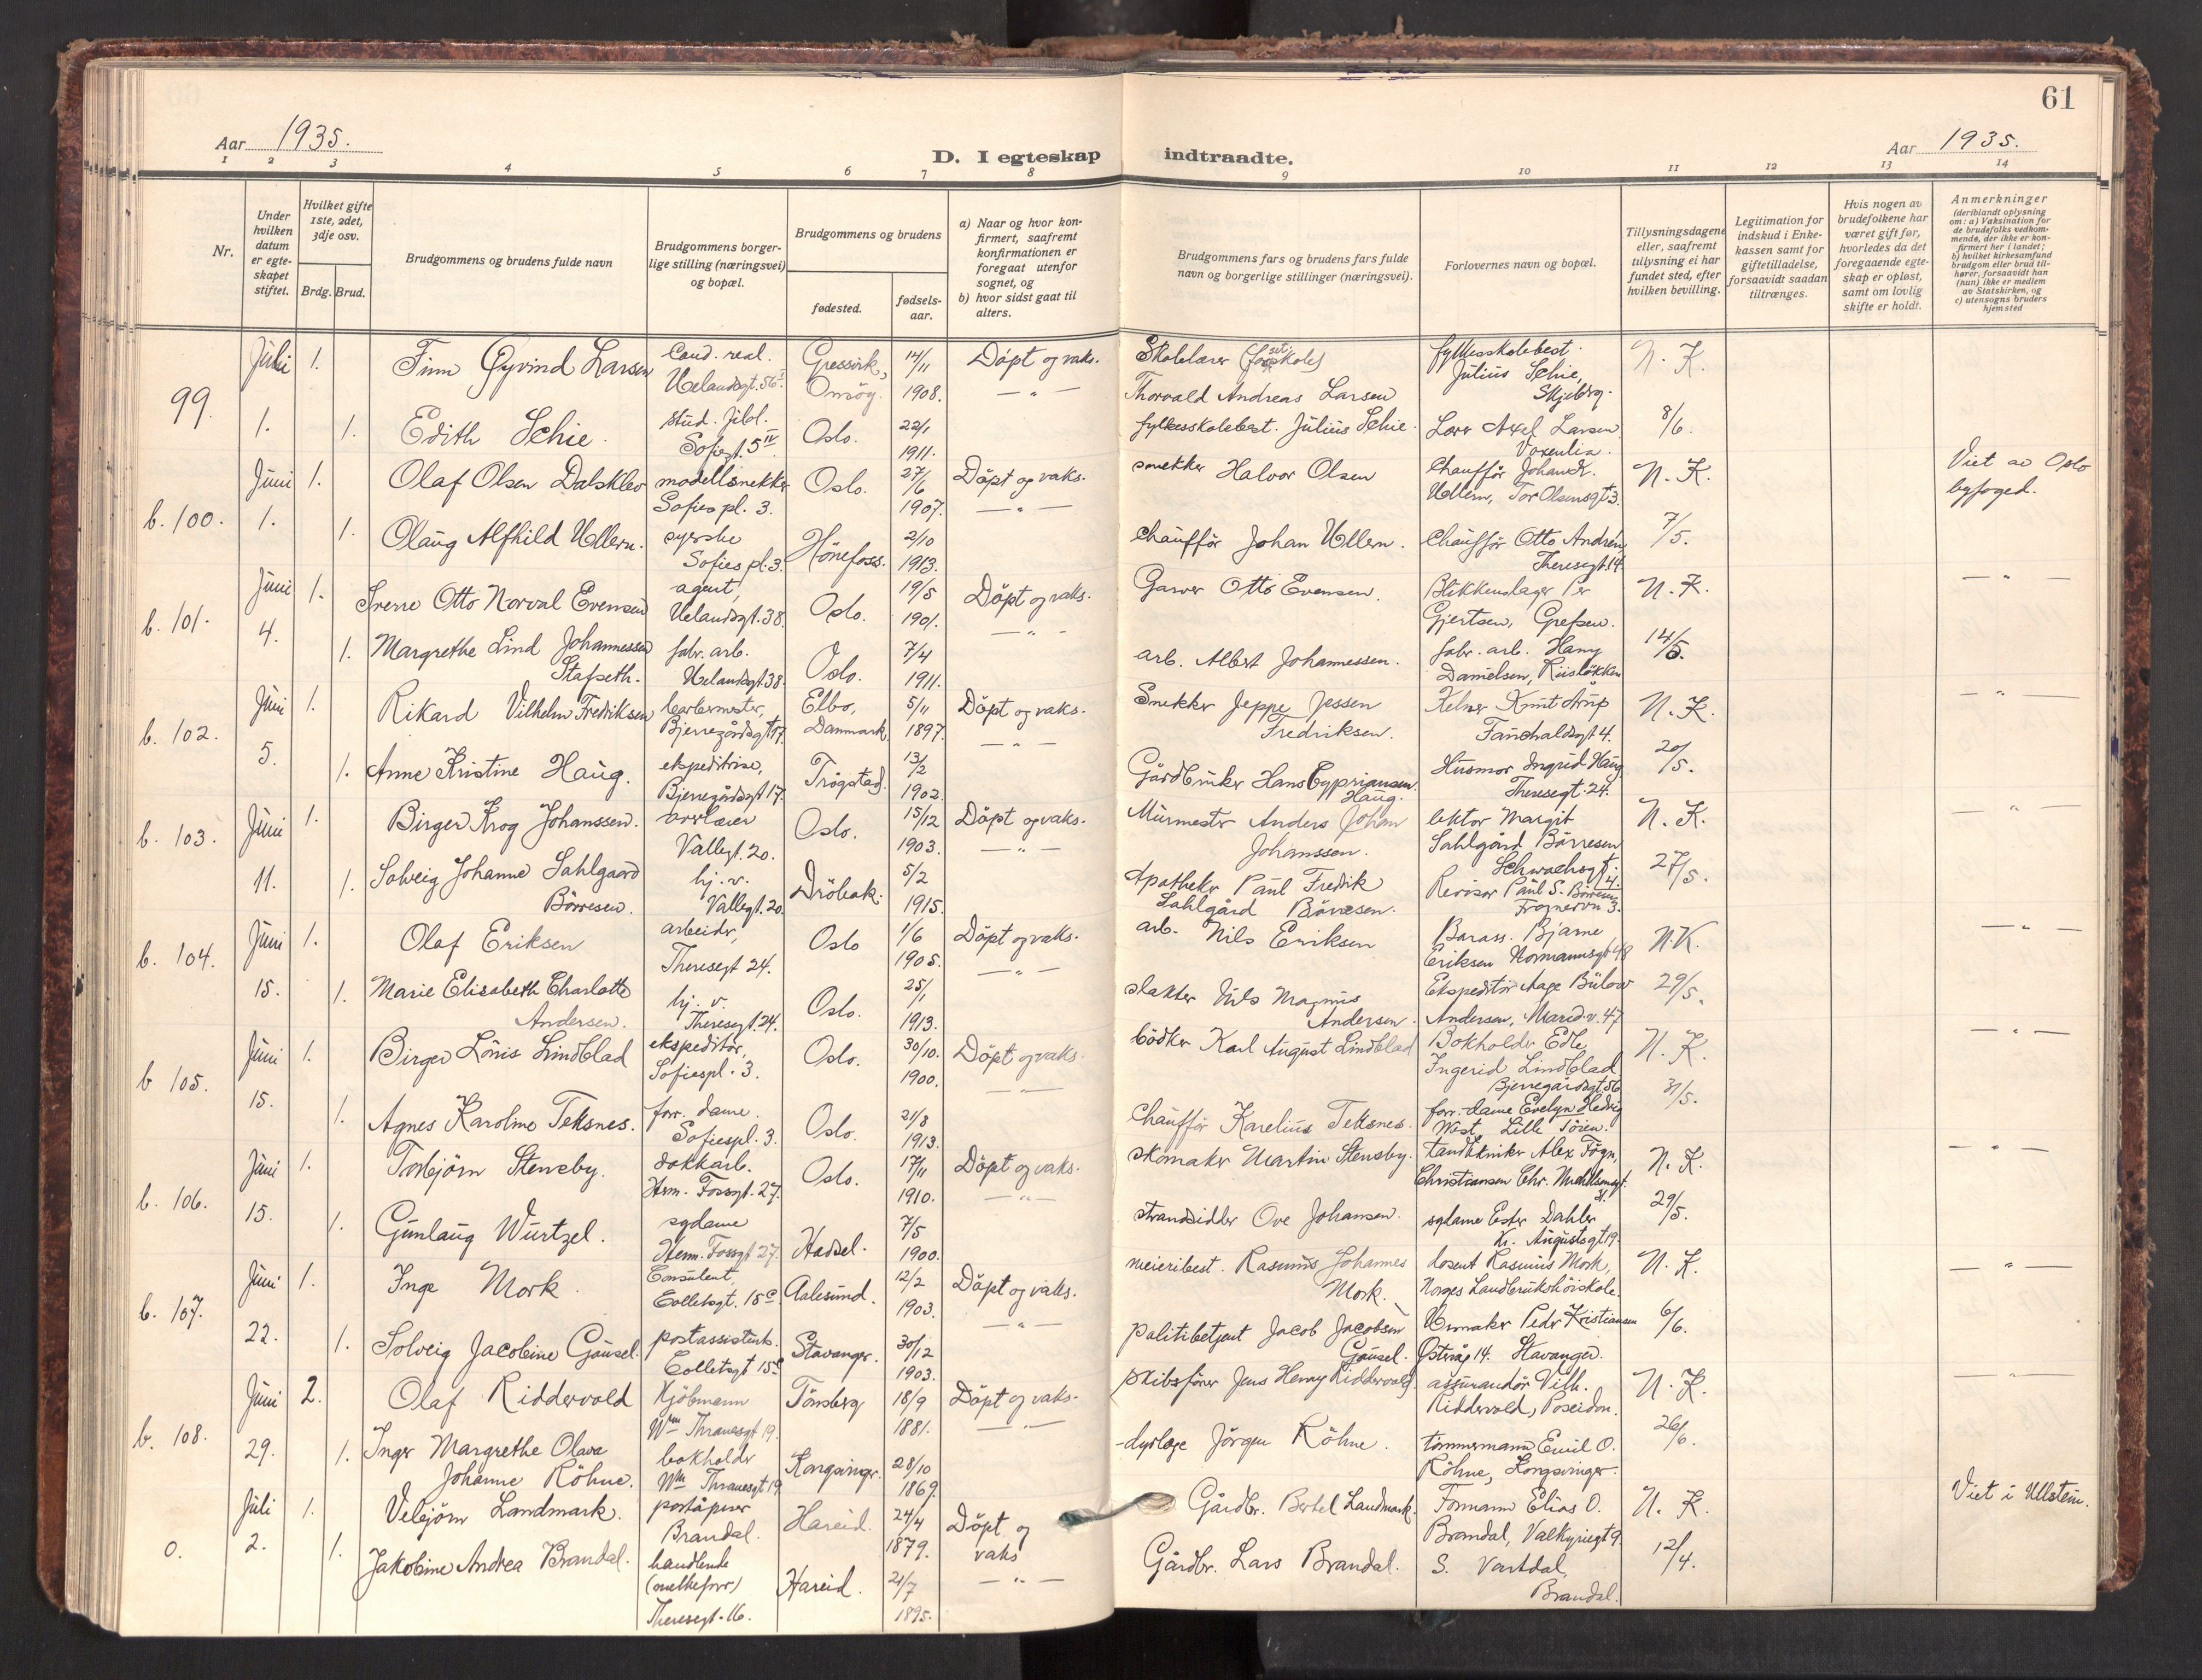 61
Aar 1935.
D. I egteskap indtraadte.
Aar 1935.
1 2 3 4 5 6 7 8 9 10 11 12 13 14
Nr.
Under hvilken datum er egteskapet stiftet.
Hvilket gifte 1ste, 2det, 3dje osv.
Brdg. Brud.
Brudgommens og brudens fulde navn
Brudgommens borgerlige stilling (næringsvei) og bopæl.
Brudgommens og brudens
fødested.
fødselsaar.
a) Naar og hvor konfirmert, saafremt konfirmationen er foregaat utenfor sognet, og
b) hvor sidst gaat til alters.
Brudgommens fars og brudens fars fulde navn og borgerlige stillinger (næringsvei).
Forlovernes navn og bopæl.
Tillysningsdagene eller, saafremt tillysning ei har fundet sted, efter hvilken bevilling.
Legitimation for indskud i Enkekassen samt for giftetilladelse, forsaavidt saadan tiltrænges.
Hvis nogen av brudefolkene har været gift før, hvorledes da det foregaaende egteskap er opløst, samt om lovlig skifte er holdt.
Anmerkninger
(deriblandt oplysning om: a) Vaksination for de brudefolks vedkommende, der ikke er konfirmert her i landet; b) hvilket kirkesamfund brudgom eller brud tilhører, forsaavidt han (hun) ikke er medlem av Statskirken, og c) utensogns bruders hjemsted
99. Juli 1. 1. Finn Øyvind Larsen Cand. real. Uelandsgt. 56 Gressvik, Onsøy. 14/11 1908. Döpt og vaks. Skolelærer Thorvald Andreas Larsen fylkesskolebest. Julius Schie, Skjeberg. N. K.
1. Edith Schie. stud. filol. Sofiesgt. 5 IV Oslo. 22/1 1911. — " — fylkesskolebest. Julius Schie. Axel Larsen Voxenlia. 8/6.
b. 100. Juni 1. 1. Olaf Olsen Dalsklev modellsnekker Sofies pl. 3. Oslo. 27/6 1907. Döpt og vaks. snekker Halvor Olsen Chauffør Johan K. Ullern, Tor Olsensgt 3. N. K. Viet av Oslo byfoged.
1. Olaug Alfhild Ullern. syerske Sofies pl. 3. Hönefoss. 2/10 1913. — " — chauffør Johan Ullern. Chauffør Otto Andrén Theresegt. 14. 7/5.
b. 101. Juni 4. 1. Sverre Otto Norval Evensen agent, Uelandsgt. 38. Oslo. 19/5 1901. Döpt og vaks. Garver Otto Evensen. Blikkenslager Per Gjertsen, Grefsen. N. K. — " —
1. Margrethe Lind Johannessen Stafseth. fabr. arb. Uelandsgt. 38. Oslo. 7/4 1911. — " — arb. Albert Johannessen. fabr. arb. Hany Danielsen, Riisløkken 14/5.
b. 102. Juni 5. 1. Rikard Vilhelm Fredriksen barbermester, Bjerregårdsgt 17. Elbo, Danmark. 5/11 1897. Döpt og vaks. Snekker Jeppe Jessen Fredriksen. Kelner Knut Arup Fauchaldsgt 4. N. K. — " —
1. Anne Kristine Haug. ekspeditrise, Bjerregårdsgt 17. Trøgstad. 13/2 1902. — " — Gårdbruker Hans Cypriansen Haug. Husmor Ingrid Haug Theresegt. 24. 20/5.
b. 103. Juni 11. 1. Birger Krog Johanssen. Vallegt. 20. Oslo. 15/12 1903. Döpt og vaks. Murmester Anders Johan Johanssen. lektor Margit Sahlgård Børresen Schwachsgt. 4. N. K. — " —
1. Solveig Johanne Sahlgaard Børresen. hj. v. Vallegt. 20. Drøbak. 5/2 1915. — " — Apotheker Paul Fredrik Sahlgård Børresen. Revisor Paul S. Børresen Frognervn 3. 27/5.
b. 104. Juni 15. 1. Olaf Eriksen arbeider, Theresegt 24. Oslo 1/6 1905. Döpt og vaks. arb. Nils Eriksen Barass. Bjarne Eriksen Normannsgt 48 N. K. — " —
1. Marie Elisabeth Charlotte Andersen. hj. v. Theresegt. 24. Oslo. 25/1 1913. — " — slakter Nils Magnus Andersen. Ekspeditør Aage Bülow Andersen, Marid.v. 47 29/5.
b 105. Juni 15. 1. Birger Louis Lindblad ekspeditør, Sofiespl. 3. Oslo. 30/10. 1900. Döpt og vaks. bødker Karl August Lindblad Bokholder Edle Ingerid Lindblad Bjerregårdsgt 56 N. K. — " —
1. Agnes Karoline Teksnes. forr. dame. Sofiespl. 3. Oslo. 21/8 1913. — " — Chauffør Karelius Teksnes. forr. dame Evelyn Hedvig West, Lille Tøien. 31/5.
b. 106. Juni 15. 1. Torbjørn Stensby. dokkarb. Herm. Fossgt. 27. Oslo. 17/11 1910. Döpt og vaks. skomaker Martin Stensby. tandtekniker Alex Christiansen Chr. Michelsensgt. N. K. — " —
1. Gunlaug Wurtzel. sydame Herm. Fossgt 27. Hadsel. 7/5 1900. — " — strandsidder Ove Johansen. sydame Ester Dahler Kr. Augustsgt 19. 29/5.
b. 107. Juni 22. 1. Inge Mork. Consulent, Colletsgt. 15 c Aalesund. 12/2 1903. Döpt og vaks. meieribest. Rasmus Johannes Mork. dosent Rasmus Mork, Norges Landbrukshøiskole. N. K. — " —
1. Solveig Jacobine Gausel. postassistent. Colletsgt 15 c Stavanger. 30/12 1903. — " — politibetjent Jacob Jacobsen Gausel. Urmaker Peder Kristiansen Østervåg 14. Stavanger. 6/6.
b. 108. Juni 29. 2. Olaf Riddervold Kjöbmann Wm Thranesgt 19. Tönsberg 18/9 1881. Döpt og vaks. skibsfører Jens Henry Riddervold. assurandør Vilh. Riddervold, Poseidon. N. K. — " —
1. Inger Margrethe Olava Johanne Röhne. bokholder Wm Thranesgt 19. Kongsvinger. 28/10 1869. — " — dyrlæge Jörgen Röhne. tömmermann Emil O. Röhne, Kongsvinger. 26/6.
0. Juli 2. 1. Vebjørn Landmark. poståpner Brandal. Hareid. 24/4 1879. Döpt og vaks Gårdbr. Bertel Landmark. Formann Elias O. Brandal, Valkyriegt 9. N. K. Viet i Ulstein.
1. Jakobine Andrea Brandal. handlende (melkeforr.) Theresegt. 16. Hareid. 21/7 1895. — " — Gårdbr. Lars Brandal. S. Vartdal, Brandal. 12/4.